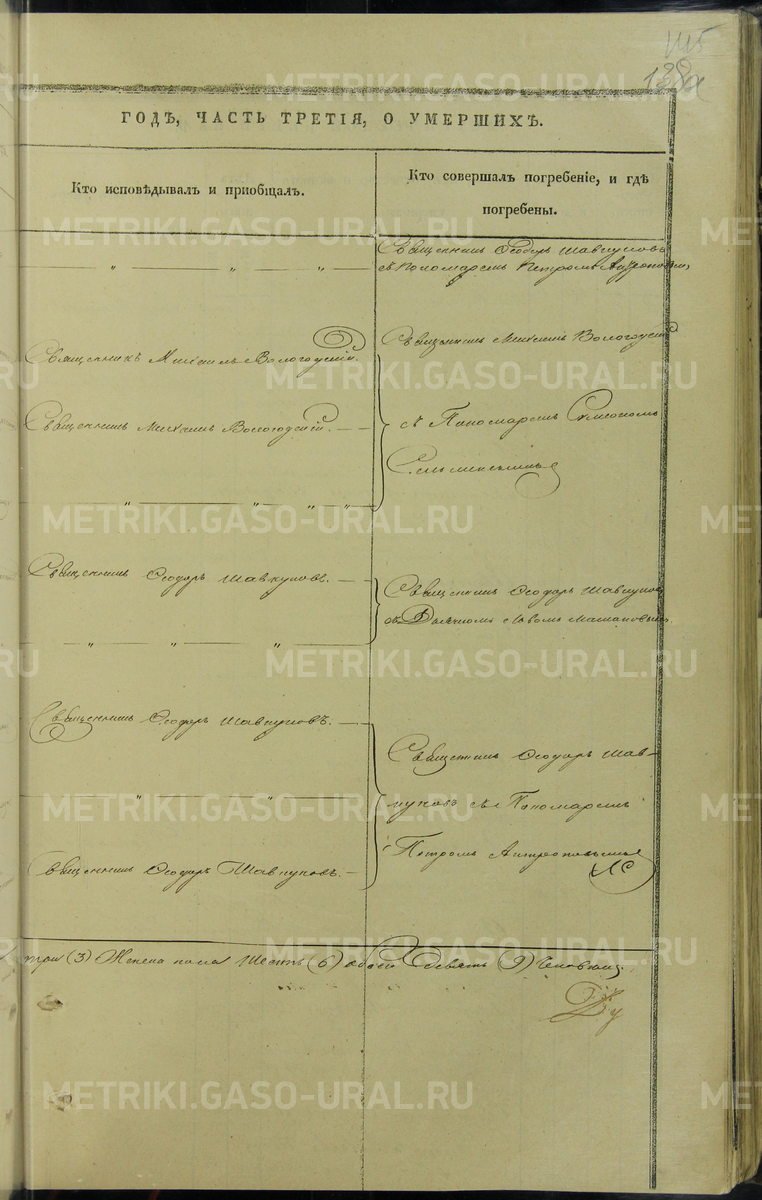 115
138
ГОДѢ, ЧАСТЬ ТРЕТІЯ, О УМЕРШИХЪ.
Кто исповѣдывалъ и пріобщалъ.
Кто совершалъ погребеніе, и гдѣ
погребены.
Священникъ Ѳеодоръ Шавкуновъ
съ Пономаремъ Петромъ
Священникъ Михаилъ Вологодскій.
Священникъ Михаилъ Вологодскій
Священникъ Михаилъ Вологодскій.
съ Пономаремъ Симеономъ
Священникъ Ѳеодоръ Шавкуновъ.
Священникъ Ѳеодоръ Шавкуновъ
съ
Священникъ Ѳеодоръ Шавкуновъ.
Священникъ Ѳеодоръ Шав-
куновъ съ Пономаремъ
Петромъ
Священникъ Ѳеодоръ Шавкуновъ.
три (3) Женска пола Шесть (6) обоего Девять (9) Человекъ.
METRIKI.GASO-URAL.RU